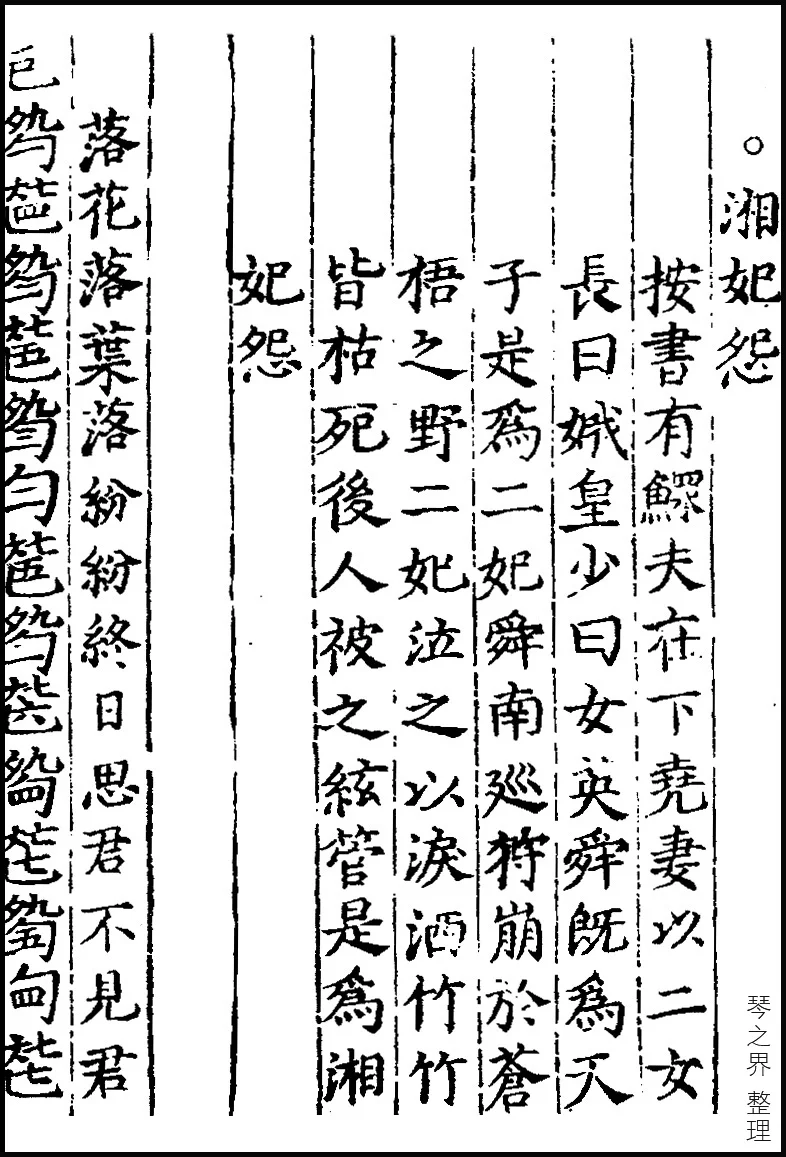 ○湘妃怨
按書有鰥夫在下堯妻以二女
長曰娥皇少曰女英舜既為天
子是為二妃舜南廵狩崩於蒼
梧之野二妃泣之以淚洒竹竹
皆枯死後人被之絃管是爲湘
妃怨
落花落葉落紛紛終日思君不見君
琴之界 整理